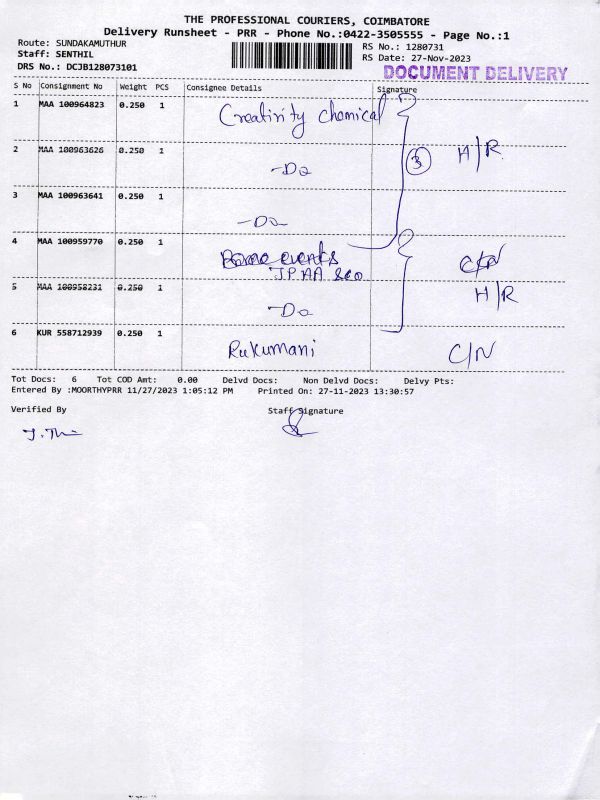 THE PROFESSIONAL COURIERS, COIMBATORE
Delivery Runsheet - PRR - Phone No.:0422-3505555 - Page No.:1
Route: SUNDAKAMUTHUR
Staff: SENTHIL
DRS No.: DCJB128073101
RS No.: 1280731
RS Date: 27-Nov-2023
DOCUMENT DELIVERY
S No Consignment No Weight PCS Consignee Details Signature
1 MAA 100964823 0.250 1 Creativity chemical
2 MAA 100963626 0.250 1 -Do 3 H/R
3 MAA 100963641 0.250 1 -Do
4 MAA 100959770 0.250 1 events
5 MAA 100958231 0.250 1 -Do H/R
6 KUR 558712939 0.250 1 Rukumani C/N
Tot Docs: 6 Tot COD Amt: 0.00 Delvd Docs: Non Delvd Docs: Delvy Pts:
Entered By :MOORTHYPRR 11/27/2023 1:05:12 PM Printed On: 27-11-2023 13:30:57
Verified By Staff Signature